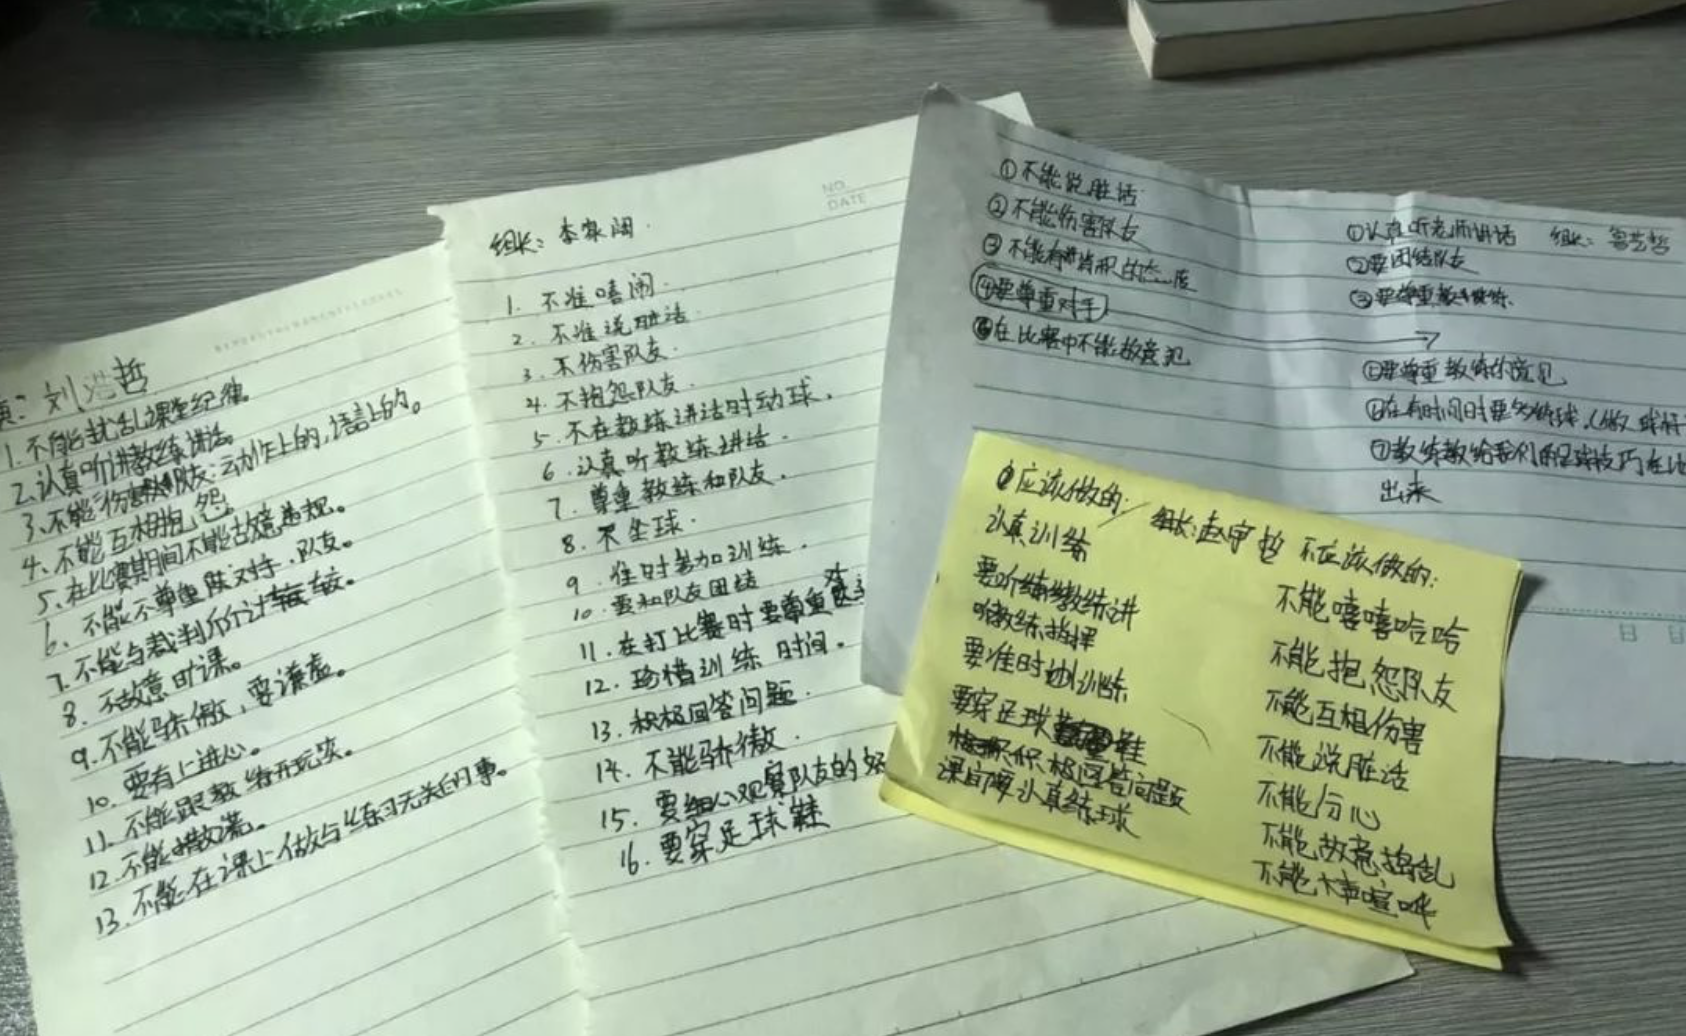 员：刘浩哲
1.不能扰乱课堂纪律。
2.认真听讲教练讲话。
3.不能伤害队友：动作上的，语言上的。
4.不能互相抱怨。
5.在比赛期间不能故意违规。
6.不能不尊重对手、队友。
7.不能与裁判斤斤计较。
8.不故意旷课。
9.不能骄傲，要谦虚。
10.要有上进心。
11.不能跟教练开玩笑。
12.不能撒谎。
13.不能在课上做与练习无关的事。
NO.
DATE
组长：李家阔
1.不准嘻闹
2.不准说脏话
3.不伤害队友
4.不抱怨队友
5.不在教练讲话时动球.
6.认真听教练讲话
7.尊重教练和队友.
8.不坐球.
9.准时参加训练.
10.要和队友团结
11.在打比赛时要尊重
12.珍惜训练时间.
13.积极回答问题
14.不能骄傲.
15.要细心观察队友的好
16.要穿足球鞋
①不能说脏话
②不能伤害队友
③不能有消积的态度
④要尊重对手
⑤在比赛中不能故意犯
①认真听老师讲话 组长：哲
②要团结队友
③要尊重教练.
⑤要尊重教练的意见
⑥在有时间时要多练球
⑦教练教给我们的足球技巧在比
出来
应该做的：组长：赵宇哲
认真训练
要听教练讲
听教练指挥
要准时训练
要穿足球鞋
积极回答问题
课间要认真练球
不应该做的：
不能嘻嘻哈哈
不能抱怨队友
不能互相伤害
不能说脏话
不能分心
不能故意捣乱
不能大声喧哗